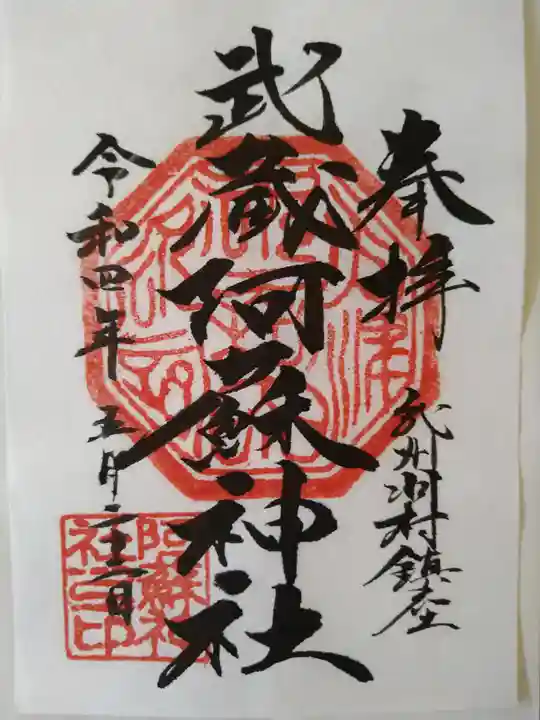 奉拝
武州羽村鎮座
武蔵阿蘇神社
令和四年五月二十二日
阿蘇神
社之印